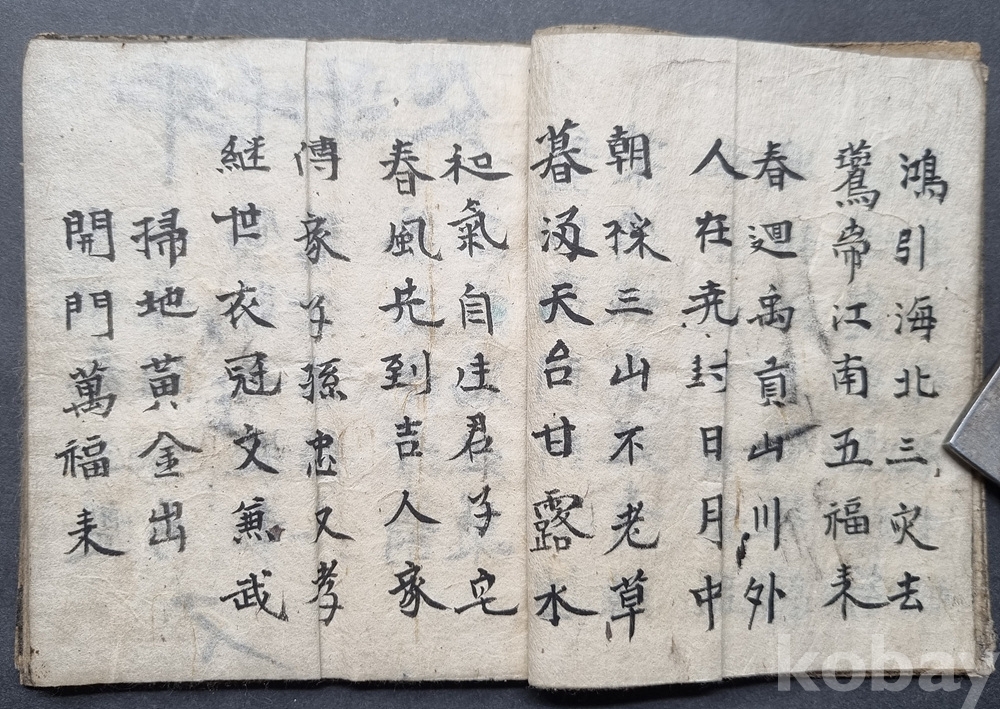 鴻引海北三灾去
鷰帯江南五福耒
春迴禹貢山川外
人在尭封日月中
朝採三山不老草
暮汲天台甘露水
和氣自生君子宅
春風先到吉人家
傳家子孫忠又孝
継世衣冠文兼武
掃地黃金出
開門萬福耒
kobay